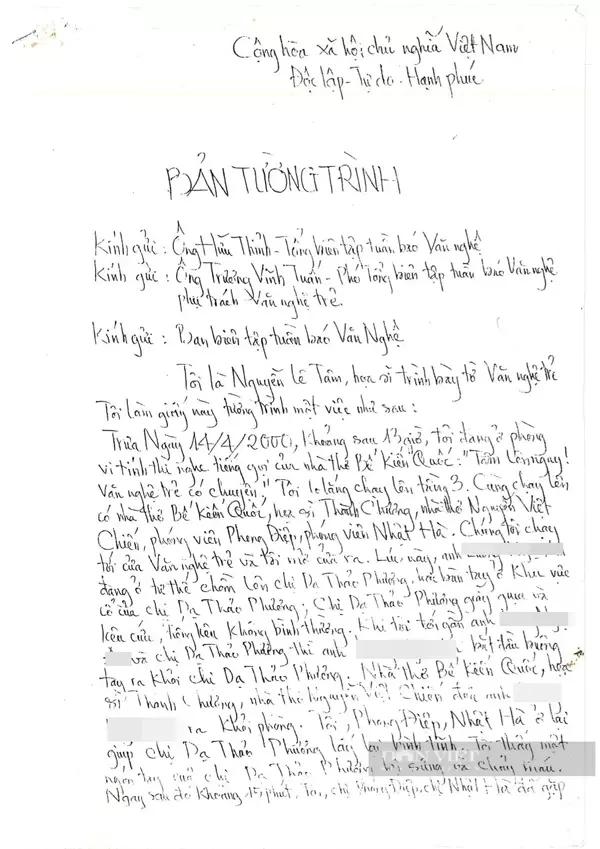 Cộng hòa xã hội chủ nghĩa Việt Nam
Độc lập - Tự do - Hạnh phúc
BẢN TƯỜNG TRÌNH
Kính gửi : Ông Hữu Thỉnh - Tổng biên tập tuần báo Văn nghệ
Kính gửi : Ông Trương Vĩnh Tuấn - Phó Tổng biên tập tuần báo Văn nghệ
phụ trách Văn nghệ trẻ.
Kính gửi : Ban biên tập tuần báo Văn Nghệ
Tôi là Nguyễn Lê Tâm, họa sĩ trình bày tờ Văn nghệ trẻ
Tôi làm giấy này tường trình một việc như sau :
Trưa Ngày 14/4/2000, khoảng sau 13 giờ, tôi đang ở phòng
vi tính thì nghe tiếng gọi của nhà thơ Bế Kiến Quốc : "Tâm lên ngay!
Văn nghệ trẻ có chuyện." Tôi lo lắng chạy lên tầng 3. Cùng chạy lên
có nhà thơ Bế Kiến Quốc, họa sĩ Thành Chương, nhà thơ Nguyễn Việt
Chiến, phóng viên Phong Điệp, phóng viên Nhật Hà. Chúng tôi chạy
tới cửa Văn nghệ trẻ và tôi mở cửa ra. Lúc này, anh
đang ở tư thế chồm lên chị Dạ Thảo Phương, hai bàn tay ở khu vực
cổ của chị Dạ Thảo Phương; Chị Dạ Thảo Phương giãy giụa và
kêu cứu, tiếng kêu không bình thường. Khi tôi tới gần anh
và chị Dạ Thảo Phương thì anh bắt đầu buông
tay ra khỏi chị Dạ Thảo Phương. Nhà thơ Bế Kiến Quốc, họa
sĩ Thành Chương, nhà thơ Nguyễn Việt Chiến đưa anh
ra khỏi phòng. Tôi, Phong Điệp, Nhật Hà ở lại
giúp chị Dạ Thảo Phương lấy lại bình tĩnh. Tôi thấy một
ngón tay của chị Dạ Thảo Phương bị sưng và chảy máu.
Ngay sau đó khoảng 15 phút, tôi, chị Phong Điệp, chị Nhật Hà đã gặp
DÂN VIỆT